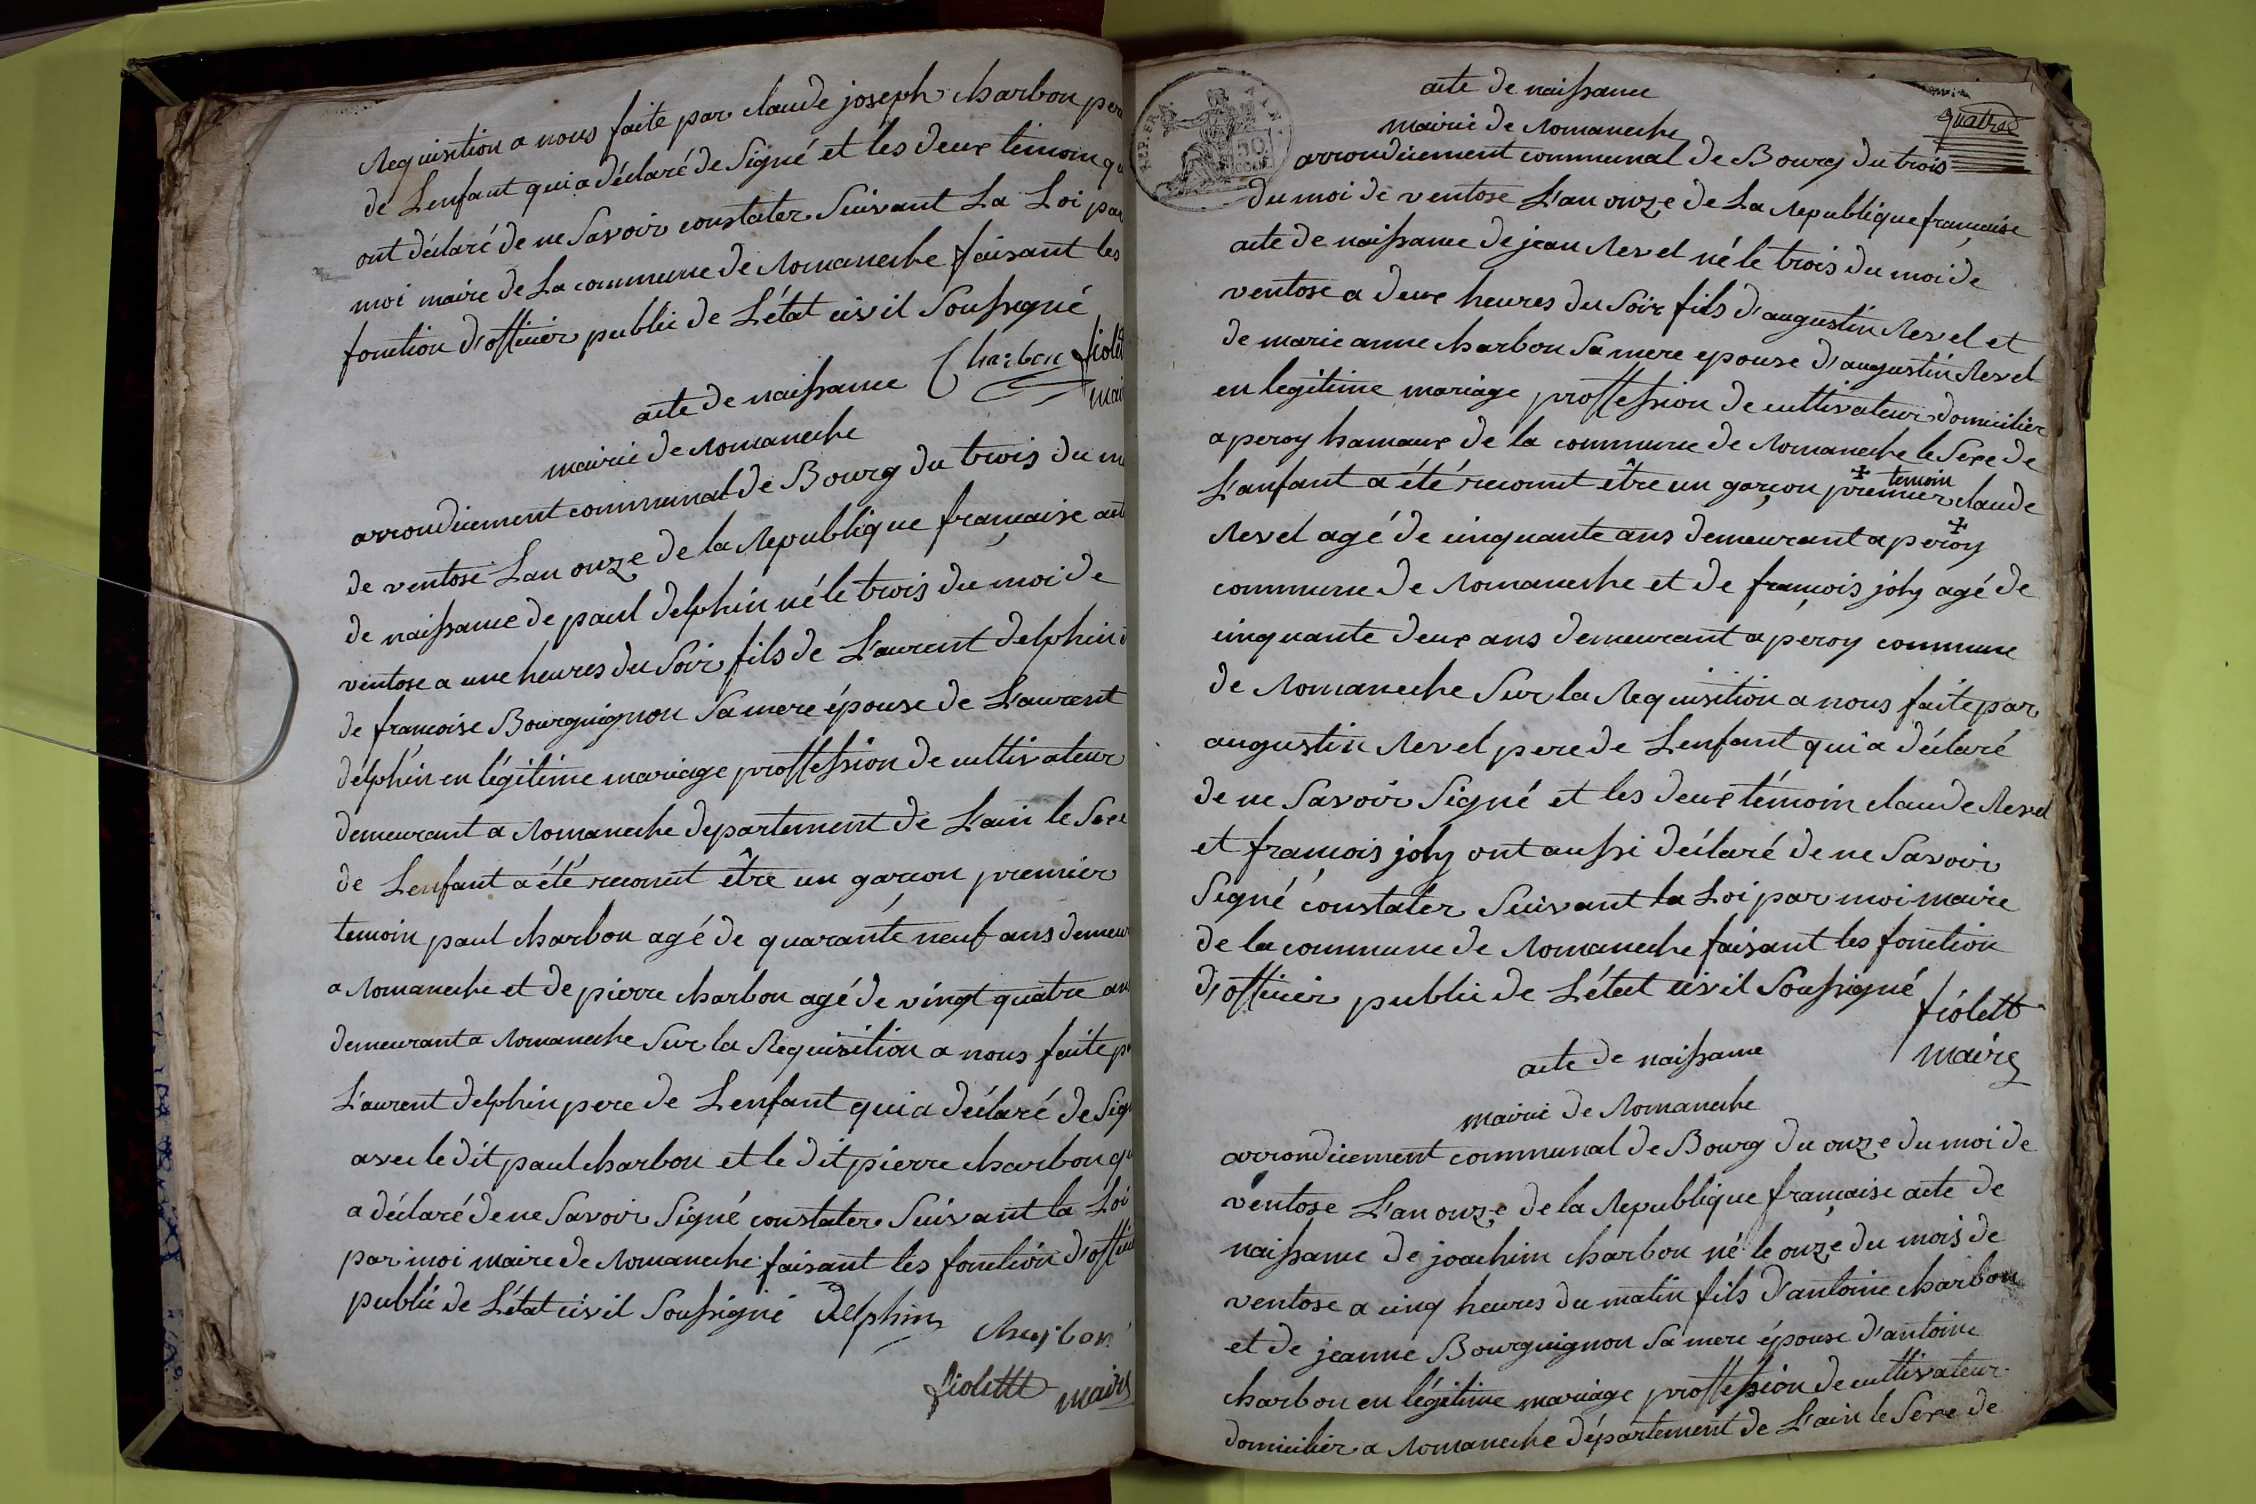 Requisition a nous faite par claude joseph charbon per
de Lenfant qui a déclaré de Signé et les deux temoin qu
ont déclaré de ne Savoir constater Suivant La Loi par
moi maire de La commune de Romaneche faisant les
fonction d'officier public de L'état civil Soussigné
Charbon fiolet
mai
acte de naissance
mairie de Romaneche
arrondicement communal de Bourg du trois du m
de ventose Lan onze de la Republique française act
de naissance de paul delphin né le trois du moi de
ventose a une heures du Soir fils de L'aurent delphin
de françoise Bourguignon Sa mere épouse de L'aurent
delphin en légitime mariage proffession de cultivateur
demeurant a Romaneche departement de L'ain le Sexe
de Lenfant a été reconut être un garcon premier
temoin paul charbon agé de quarante neuf ans demeur
a Romaneche et de pierre charbon agé de vingt quatre an
demeurant a Romaneche Sur la Requisition a nous faite p
L'aurent delphin pere de Lenfant qui a déclaré de Sig
avec le dit paul charbon et le dit pierre charbon qu
a déclaré de ne Savoir Signé constater Suivant la Loi
par moi maire de Romaneche faisant les fonction d'offici
public de L'état civil Soussigné Delphin
Charbon
fiolettt maire
REP. FRA.
50
quatre
acte de naissance
mairie de Romaneche
arrondicement communal de Bourg du trois
du moi de ventose L'an onze de La Republique française
acte de naissance de jean Revel né le trois du moi de
ventose a deux heures du Soir fils d'augustin Revel et
de marie anne charbon Sa mere epouse d'augustin Revel
en legitime mariage proffession de cultivateur domicilier
a peroy hamaux de la commune de Romaneche le Sexe de
L'anfant a été reconnut être un garçon premier + temoin claude
Revel agé de cinquante ans demeurant a peroy +
commune de Romaneche et de françois joly agé de
cinquante deux ans demeurant a peroy commune
de Romaneche Sur la Requisition a nous faite par
augustin Revel pere de Lenfant qui a déclaré
de ne Savoir Signé et les deux témoin claude Revel
et françois joly ont aussi déclaré de ne Savoir
Signé constater Suivant la Loi par moi maire
de la commune de Romaneche faisant les fonction
d'officier public de L'état civil Soussigné
fiolettt
maire
acte de naissance
mairie de Romaneche
arrondicement communal de Bourg du onze du moi de
ventose L'an onze de la Republique française acte de
naissance de joachim charbon né le onze du mois de
ventose a cinq heures du matin fils d'antoine charbon
et de jeanne Bourguignon Sa mere épouse d'antoine
charbon en légitime mariage proffession de cultivateur
domicilier a Romaneche département de L'ain le Sexe de